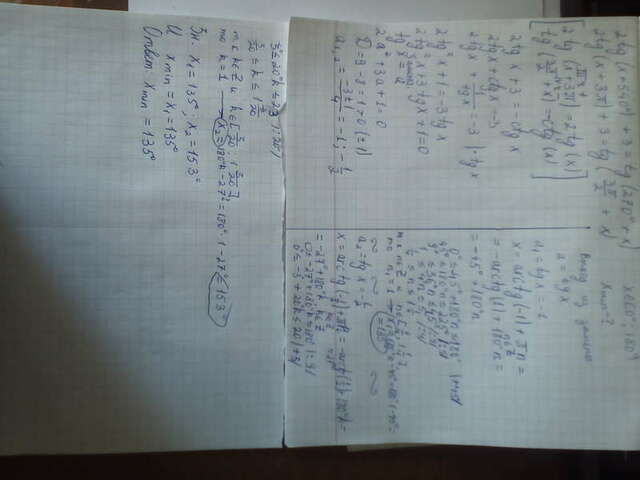 2tg(x+540°)+3=tg(270°+x)
x∈[0°;180°]
2tg(x+3π)+3=tg(3π/2+x)
x min-?
[2tg(x+3π)=2tg(x)
tg(3π/2+x)=-ctg(x)]
2tgx+3=-ctgx
2tgx+ctgx=-3
2tgx+1/tgx=-3 |·tgx
2tg²x+1=-3tgx
2tg²x+3tgx+1=0
Замена:
tgx=a
2a²+3a+1=0
D=9-8=1>0 (±1)
a1,2=(-3±1)/4=-1;-1/2
Выход из замены
a=tgx
a1=tgx=-1
x=arctg(-1)+πn=
n∈Z
=-arctg(1)+180°n=
=-45°+180°n
0°≤-45°+180°n≤180° |+45
45°≤180°n≤225° |:5
9°≤36°n≤45° |:9
1≤4n≤5 |:4
1/4≤n≤1 1/4
т.к n∈Z и n∈[1/4;1 1/4],
то n1=1 → x1=180°n-45°=180°·1-45°=
=135°
a2=tgx=-1/2
x=arctg(-1/2)+πk=-arctg(1/2)+180°k=
=-27°+180°k, k∈Z
0≤-27°+180°k≤180 |:9
0≤-3+20k≤20 |+3
3≤20°k≤23 |:20
3/20≤k≤1 3/20
т.к k∈Z и k∈[3/20;1 3/20],
то k=1 → x2=180°k-27°=180°·1-27°=153°
Зн. x1=135°; x2=153°
И xmin=x1=135°
Ответ: xmin=135°